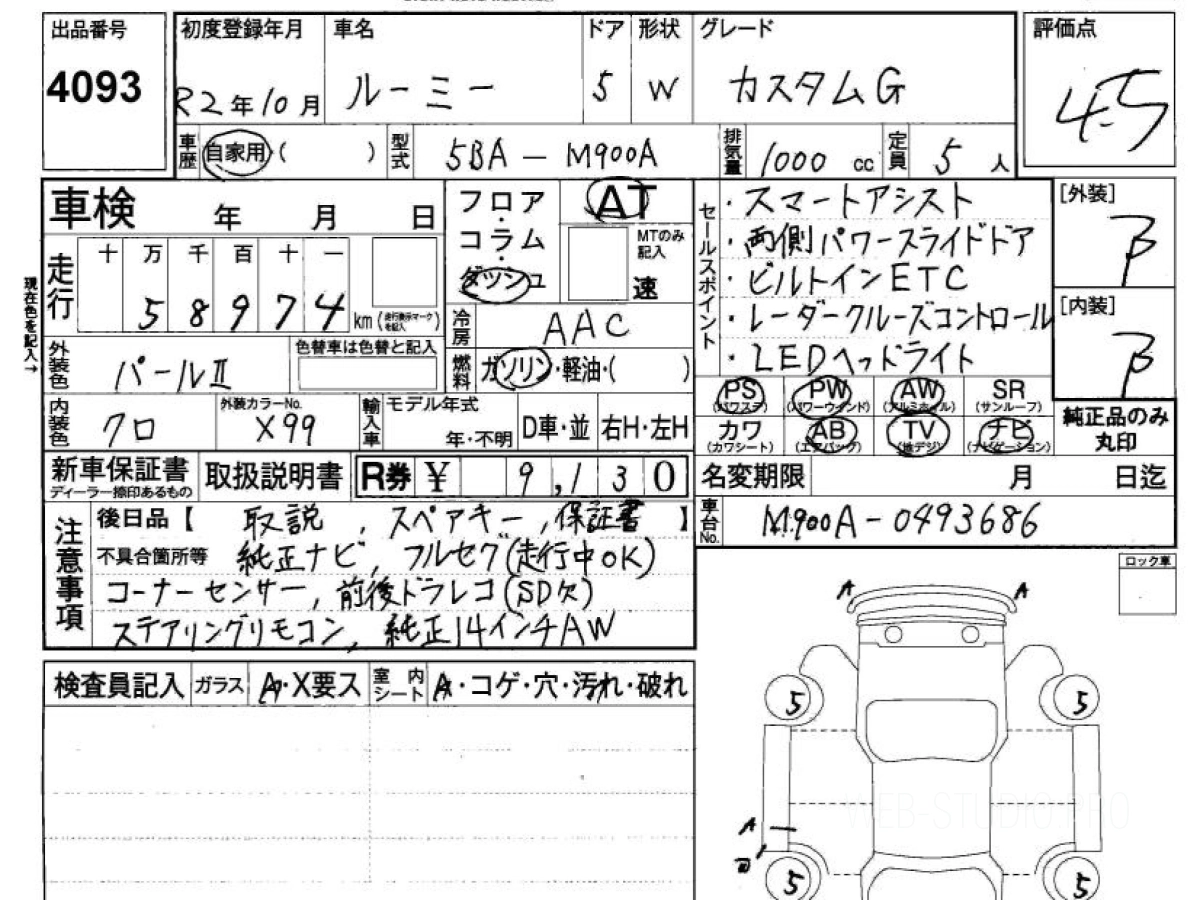 出品番号
4093
初度登録年月
R2年10月
車名
ルーミー
ドア
5
形状
W
グレード
カスタムG
評価点
4.5
車歴
自家用( )
型式
5BA-M900A
排気量
1000 cc
定員
5人
車検 年 月 日
走行
十 万 千 百 十 一
5 8 9 7 4
km(走行表示マークを記入)
現在色を記入→
外装色
パールⅡ
色替車は色替と記入
内装色
クロ
外装カラーNo.
X99
輸入車
モデル年式
年・不明
D車・並
右H・左H
フロア・コラム・ダッシュ
AT
MTのみ記入
速
冷房
AAC
燃料
ガソリン・軽油・( )
セールスポイント
・スマートアシスト
・両側パワースライドドア
・ビルトインETC
・レーダークルーズコントロール
・LEDヘッドライト
[外装]
B
[内装]
B
PS
(パワステ)
PW
(パワーウインド)
AW
(アルミホイル)
SR
(サンルーフ)
カワ
(カワシート)
AB
(エアバック)
TV
(地デジ)
ナビ
(ナビゲーション)
純正品のみ丸印
新車保証書
ディーラー捺印あるもの
取扱説明書
R券 ¥ 9,130
名変期限 月 日迄
車台No.
M900A-0493686
注意事項
後日品【 取説 , スペアキー , 保証書 】
不具合箇所等 純正ナビ, フルセグ(走行中OK)
コーナーセンサー, 前後ドラレコ(SD欠)
ステアリングリモコン, 純正14インチAW
ロック車
検査員記入
ガラス
A・X要ス
室内シート
A・コゲ・穴・汚れ・破れ
A
A
5
5
A
5
5
WEB-STUDIO.PRO